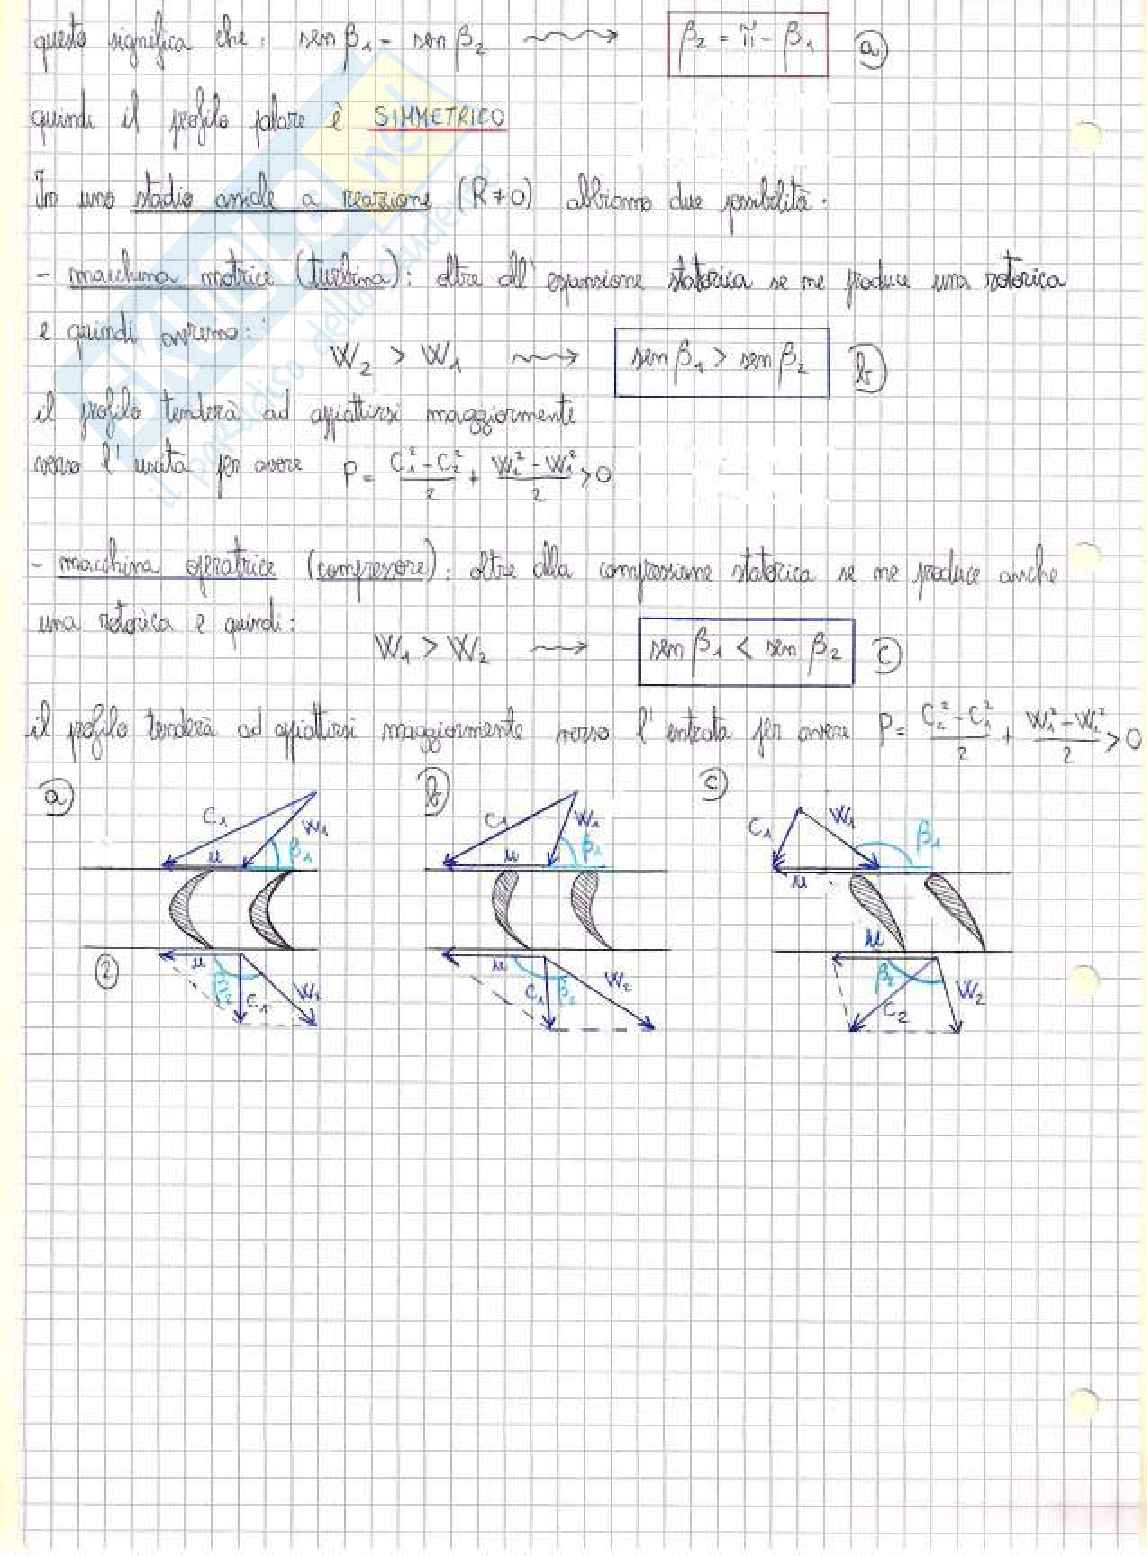 questo significa che: sen β₁ - sen β₂ ⟿ β₂ = π - β₁ ⓐ
quindi il profilo palare è SIMMETRICO
In uno stadio assiale a reazione (R≠0) abbiamo due possibilità:
- macchina motrice (turbina): oltre all' espansione statorica se ne produce una rotorica
e quindi avremo:
W₂ > W₁ ⟿ sen β₁ > sen β₂ ⓑ
il profilo tenderà ad appiattirsi maggiormente
verso l' uscita per avere P = (C₁² - C₂²)/2 + (W₂² - W₁²)/2 > 0
- macchina operatrice (compressore): oltre alla compressione statorica se ne produce anche
una rotorica e quindi:
W₁ > W₂ ⟿ sen β₁ < sen β₂ ⓒ
il profilo tenderà ad appiattirsi maggiormente verso l' entrata per avere P = (C₂² - C₁²)/2 + (W₁² - W₂²)/2 > 0
ⓐ ⓑ ⓒ
C₁ W₁ u β₁ C₁ W₁ u β₁ C₁ W₁ u β₁
② u β₂ C₁ W₂ u C₁ β₂ W₂ u β₂ C₂ W₂
SKUOLA.net